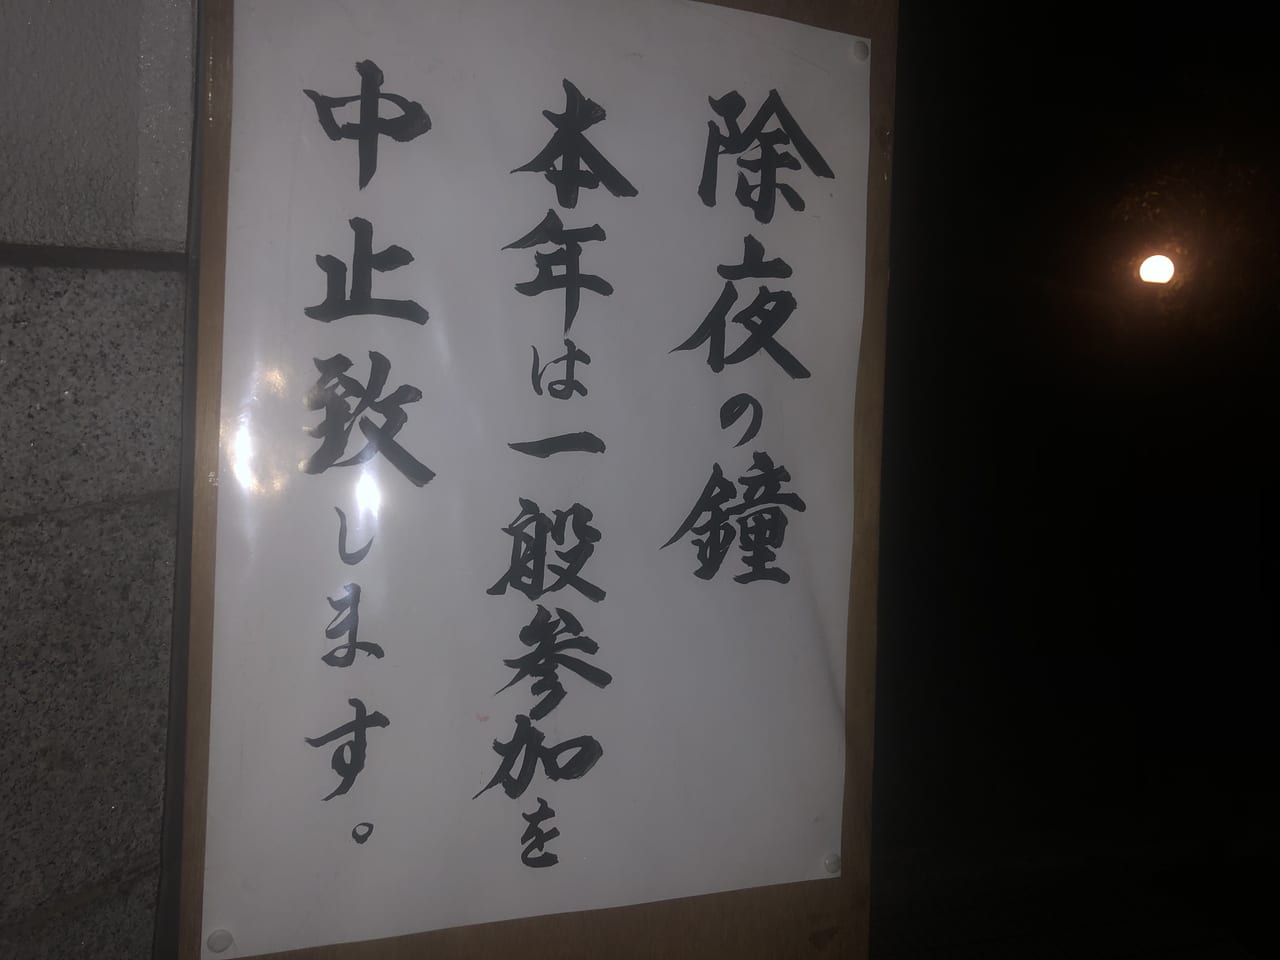 除夜の鐘
本年は一般参加を
中止致します。